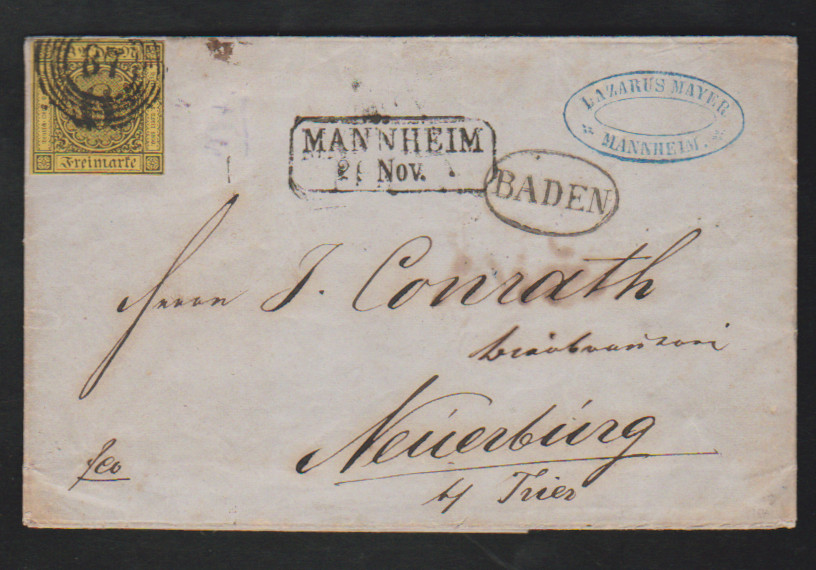 87
Freimarke
MANNHEIM
21 Nov.
BADEN
LAZARUS MAYER
MANNHEIM.
Herrn J. Conrath
Bierbrauerei
Neuerburg
b/ Trier
fco